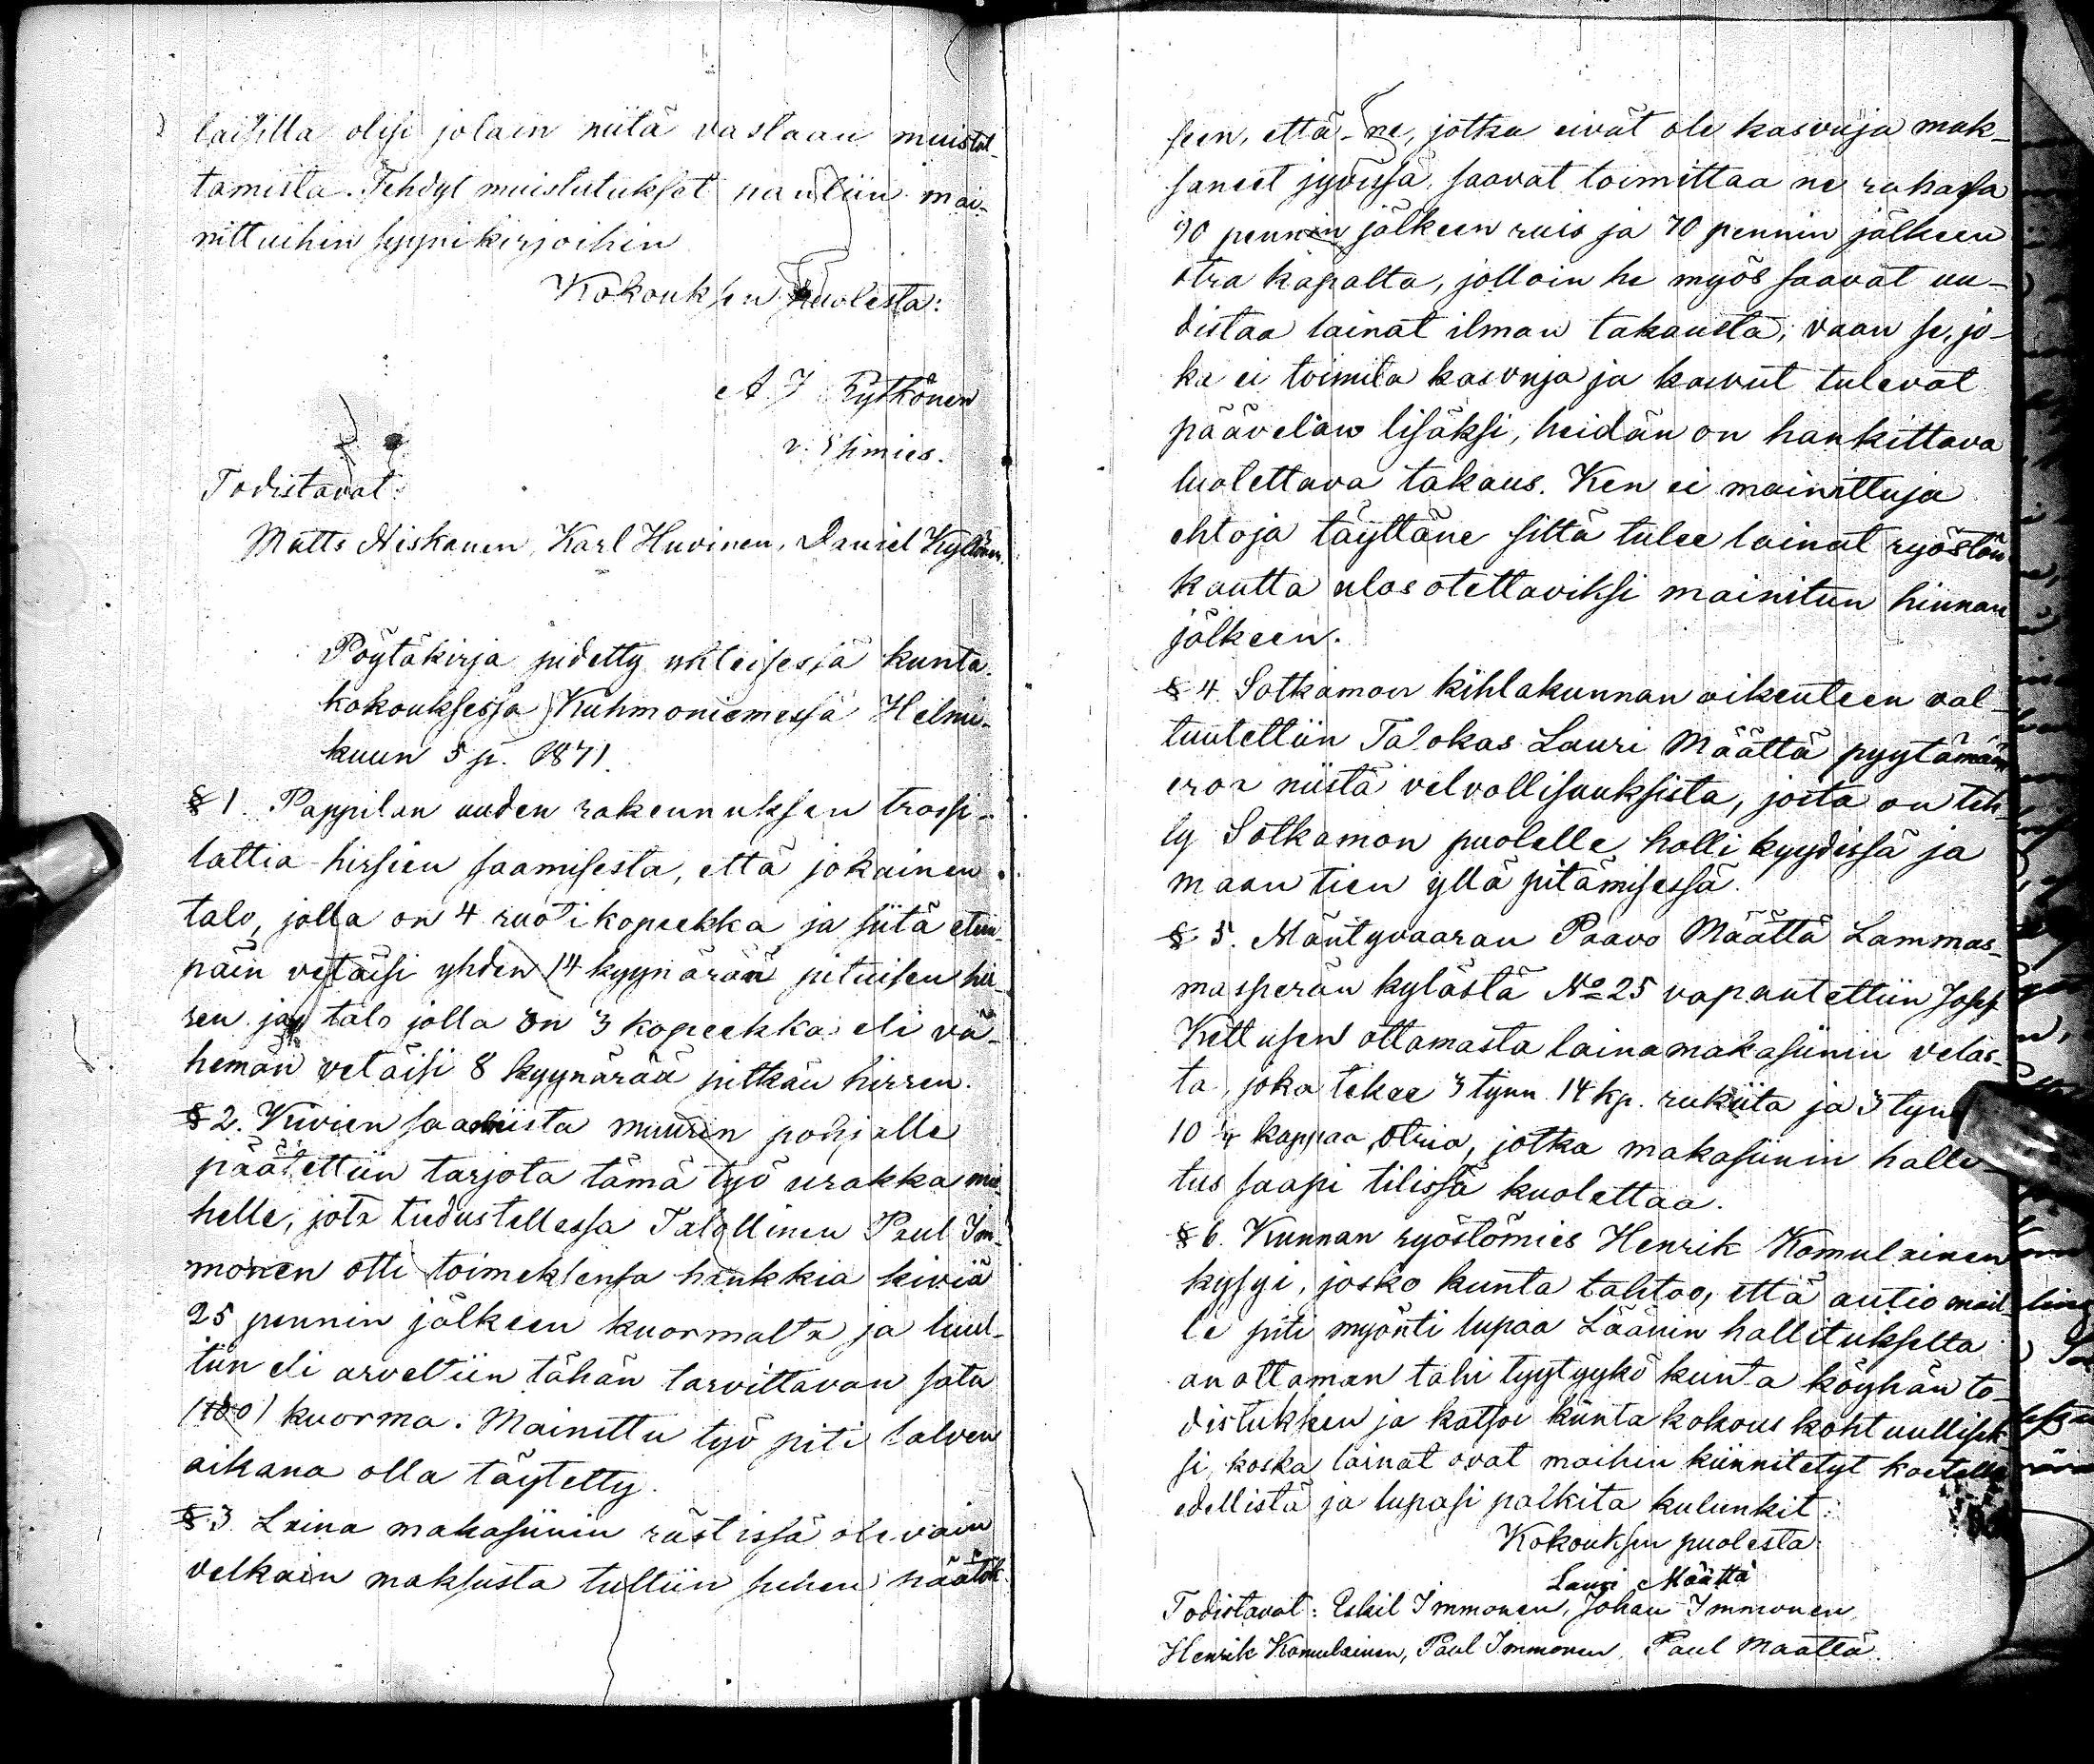 laisilla olisi jotain niitä vastaan muistut-
tamista. Tehdyt muistutukset pantiin mai-
nittuihin syynikirjoihin
Kokouksen puolesta:
A. J. Kytkönen
v. Esimies.
Todistavat:
Matts Niskanen, Karl Huvinen, Daniel Kyllönen.
Pöytäkirja pidetty yhteisessä kunta-
kokouksessa Kuhmoniemessä Helmi-
kuun 5 p. 1871.
§ 1. Pappilan uuden rakennuksen trossi-
lattia-hirsien saamisesta, että jokainen
talo, jolla on 4 ruotikopeekka ja siitä eteen-
päin vetäisi yhden 14 kyynärän pituisen hir-
ren ja talo jolla on 3 kopeekka eli vä-
hemän vetäisi 8 kyynärää pitkän hirren.
§ 2. Kivien saannista muurin pohjalle
päätettiin tarjota tämä työ urakka mie-
helle, jota tiedustellessa Talollinen Paul Im-
monen otti toimeksensa hankkia kiviä
25 pennin jälkeen kuormalta ja luul-
tiin eli arveltiin tähän tarvittavan sata
(100) kuorma. Mainittu työ piti talven
aikana olla täytetty.
§ 3. Laina makasiinin rästissä olevain
velkain maksusta tultiin siihen päätök-
seen, että ne, jotka eivät ole kasvuja mak-
saneet jyvissä, saavat toimittaa ne rahassa
90 pennin jälkeen ruis ja 70 pennin jälkeen
otra kapalta, jolloin he myös saavat uu-
distaa lainat ilman takausta, vaan se, jo-
ka ei toimita kasvuja ja kasvut tulevat
päävelan lisäksi, heidän on hankittava
luotettava takaus. Ken ei mainittuja
ehtoja täyttäne siltä tulee lainat ryöstön
kautta ulosotettaviksi mainitun hinnan
jälkeen.
§ 4. Sotkamon kihlakunnan oikeuteen val-
tuutettiin Talokas Lauri Määttä pyytämään
eroa niistä velvollisuuksista, joita on teh-
ty Sotkamon puolelle hollikyydissä ja
maantien yllä pitämisessä.
§ 5. Mäntyvaaran Paavo Määttä Lammas-
masperän kylästä No 25 vapautettiin Josef
Kettusen ottamasta lainamakasiinin velas-
ta, joka tekee 3 tynn. 14 kp. rukiita ja 3 tynn
10 1/4 kappaa otria, jotka makasiinin halli-
tus saapi tilissä kuolettaa.
§ 6. Kunnan ryöstömies Henrik Komulainen
kysyi, josko kunta tahtoo, että autio mail-
le piti myönti lupaa Läänin hallitukselta
anottaman tahi tyytyykö kunta köyhän to-
distukseen ja katsoi kuntakokous kohtuullisek-
si, koska lainat ovat maihin kiinnitetyt koetella
edellistä ja lupasi palkita kulunkit:
Kokouksen puolesta:
Lauri Määttä
Todistavat: Eskil Immonen, Johan Immonen,
Henrik Komulainen, Paul Immonen, Paul Määttä.